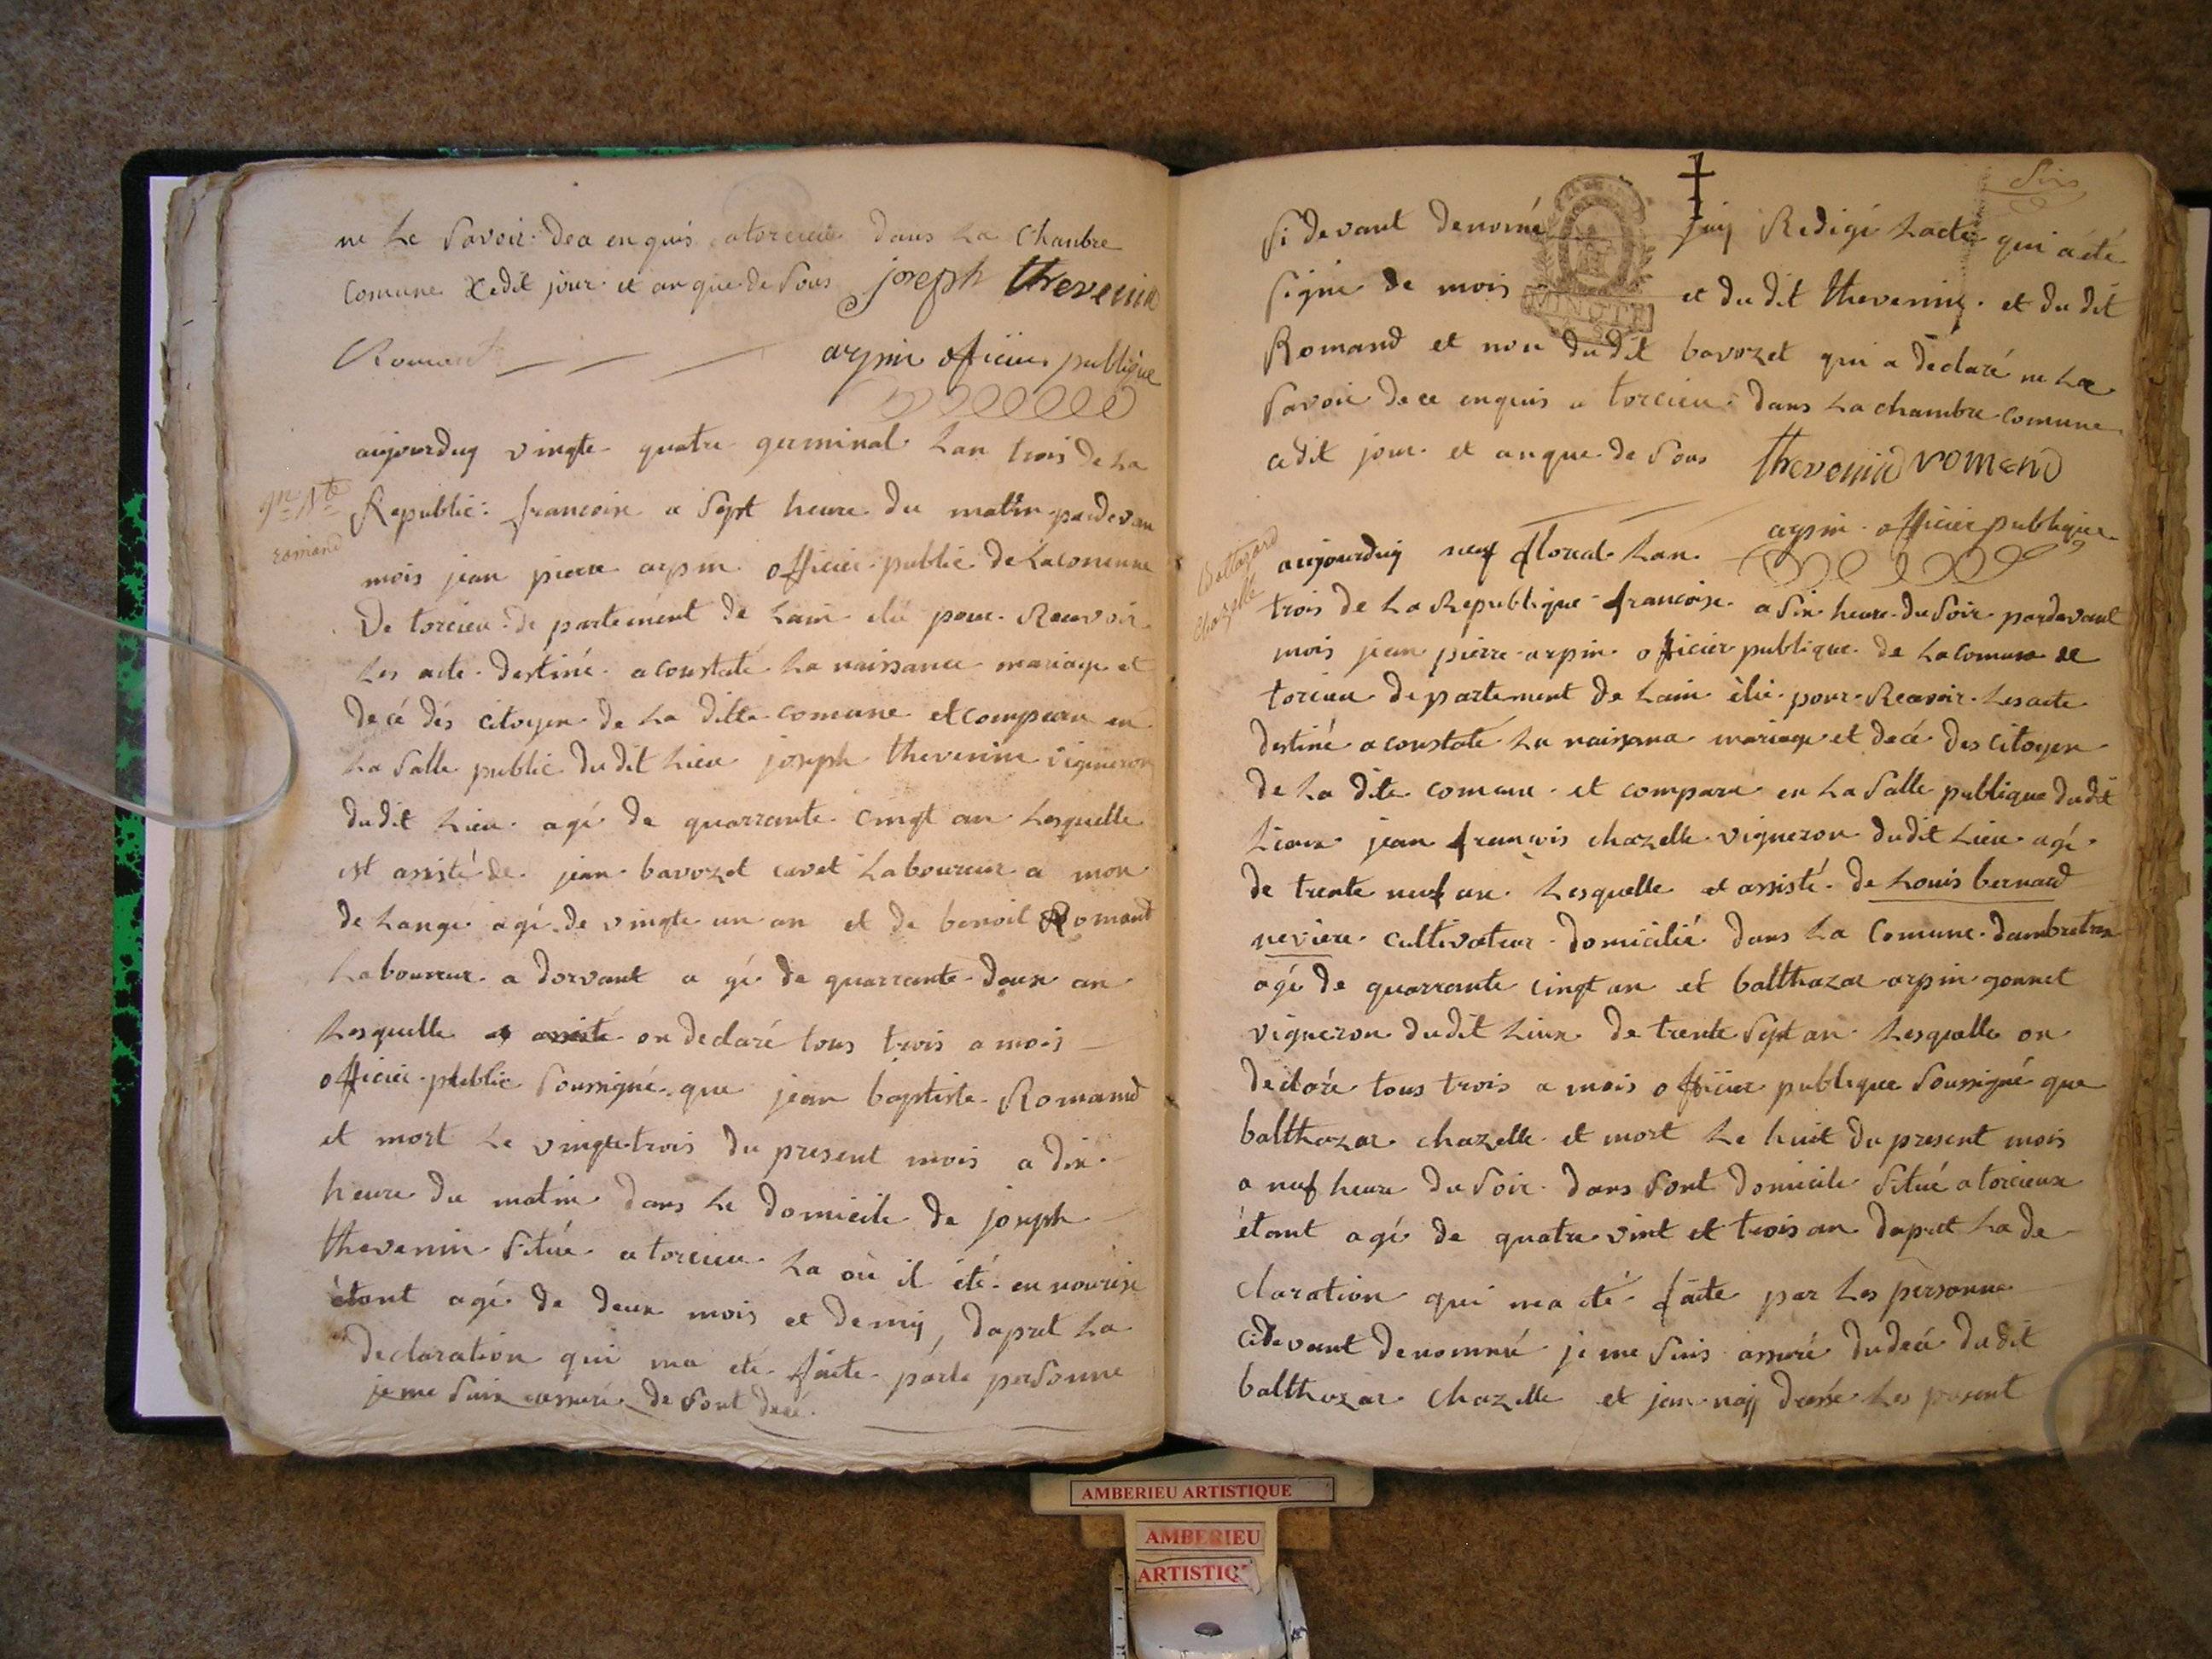 ne Le Savoir dea enquis a torcieu dans La Chanbre
Comune Cedit jour et an que de Sous joseph thevenin
Romant arpin officier publique
aujourduy vingte quatre germinal Lan trois de La
jn Bte
romand
Republic francoise a Sept heure du matin pardevan
mois jean pierre arpin officier public de La comune
De torcieu departement de Lain élü pour Recevoir
Les acte destiné a constaté La naissance mariage et
decé dés citoyen de La ditte comune et comparu en
La Salle public dudit Lieu joseph thevenin vigneron
dudit Lieu agé de quarrante cingt an Lesquelle
est assisté de jean bavozet cavet Laboureur a mon
de Lange agé de vingte un an et de benoit Romant
Laboureur a dorvant a gé de quarrante deux an
Lesquelle on declaré tous trois a mois
officier public Soussigné que jean baptiste Romand
et mort Le vingte trois du present mois a dix
heure du matin dans Le domicile de joseph
thevenin Situé a torcieu La où il été en nourise
étant agé de deux mois et demy, dapret La
declaration qui ma eté faite parlé personne
je me Suis assuré de Sont decé
Six
Si devant denomé jay Redigé Lacte qui a été
signé de mois et du dit thevenin et du dit
MINUTE
Romand et non dudit bavozet qui a déclaré ne Le
Savoir de ce enquis a torcieu dans La chambre comune
cedit jour et an que de Sous thevenin romand
arpin officier publique
Baltazard
Chazelle
aujourduy neuf floreal Lan
trois de La Republique francoise a Six heure du Soir pardevant
mois jean pierre arpin officier publique de La comune de
torcieu departement de Lain élü pour Recevoir Les acte
destiné a constaté La naissance mariage et decé des citoyen
de La dite comune et comparu en La Salle publique dudit
Lieux jean francois chazelle vigneron dudit Lieu agé
de trente neuf an Lesquelle et assisté de Louis bernard
neviere cultivateur domicilié dans La Comune dambretrix
agé de quarrante cingt an et balthazar arpin gonnet
vigneron dudit Lieux de trente Sept an Lesquelle on
declaré tous trois a mois officier publique Soussigné que
balthazar chazelle et mort Le huit du present mois
a neuf heure du Soir dans Sont domicile Situé a torcieux
étant agé de quatre vint et trois an dapret La de
claration qui ma eté faite par Les personne
cidevant denommé je me Suis assuré du decé dudit
balthazar Chazelle et jen naÿ dressé Les present
AMBERIEU ARTISTIQUE
AMBERIEU
ARTISTIQ